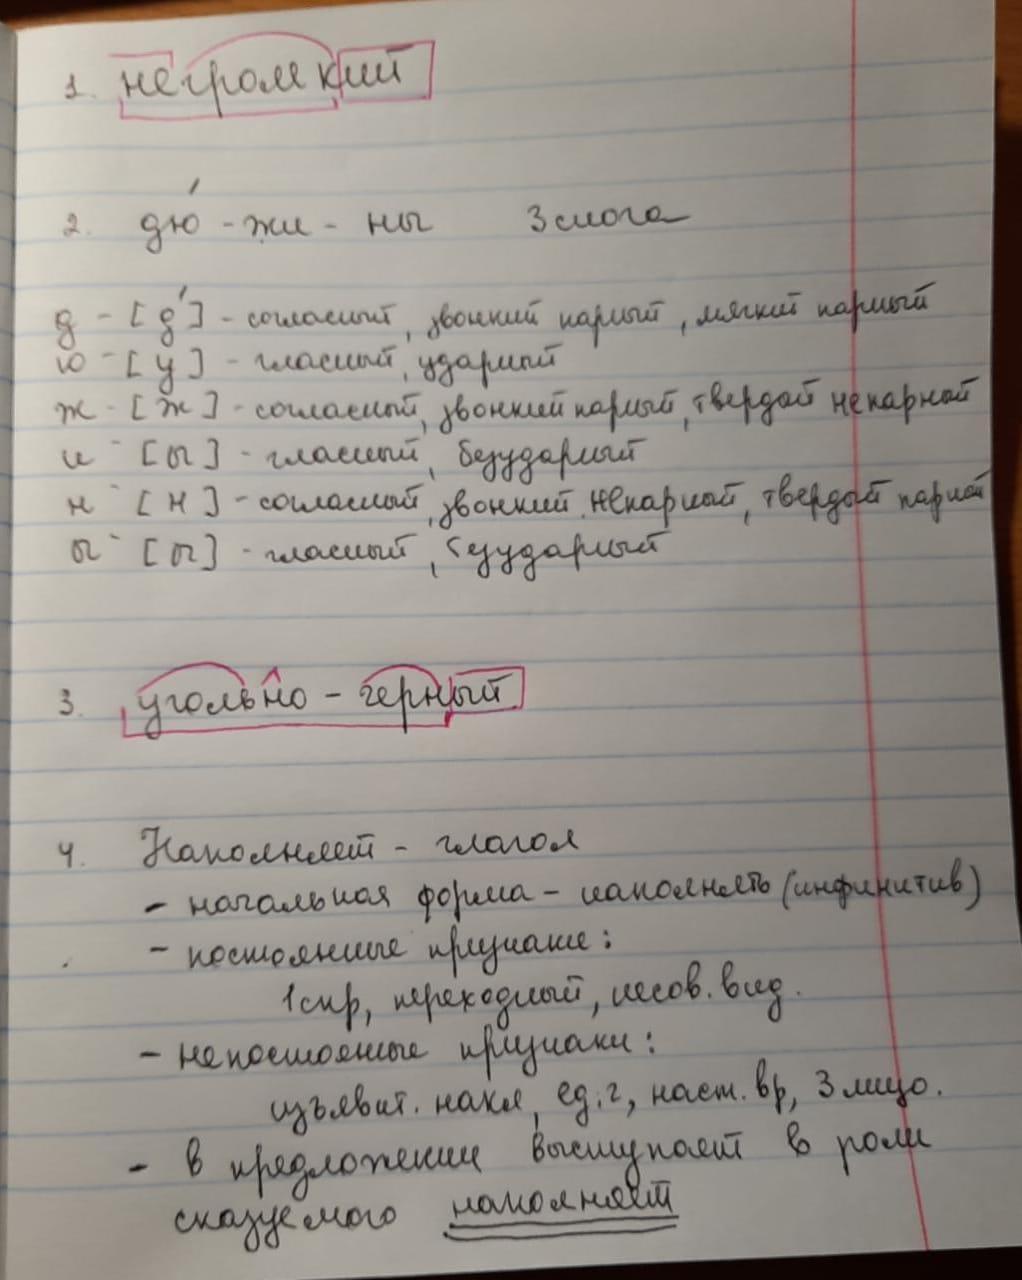 1. негромкий
2. дю - жи - ны 3 слога
д - [д'] - согласный, звонкий парный, мягкий парный
ю - [у] - гласный, ударный
ж - [ж] - согласный, звонкий парный, твердый непарной
и - [ы] - гласный, безударный
н - [н] - согласный, звонкий непарный, твердый парной
ы - [ы] - гласный, безударный
3. угольно - черный
4. Наполняет - глагол
- начальная форма - наполнять (инфинитив)
- постоянные признаки:
1 спр, переходный, несов. вид.
- непостоянные признаки:
изъявит. накл, ед. ч, наст. вр, 3 лицо.
- в предложении выступает в роли
сказуемого наполняет